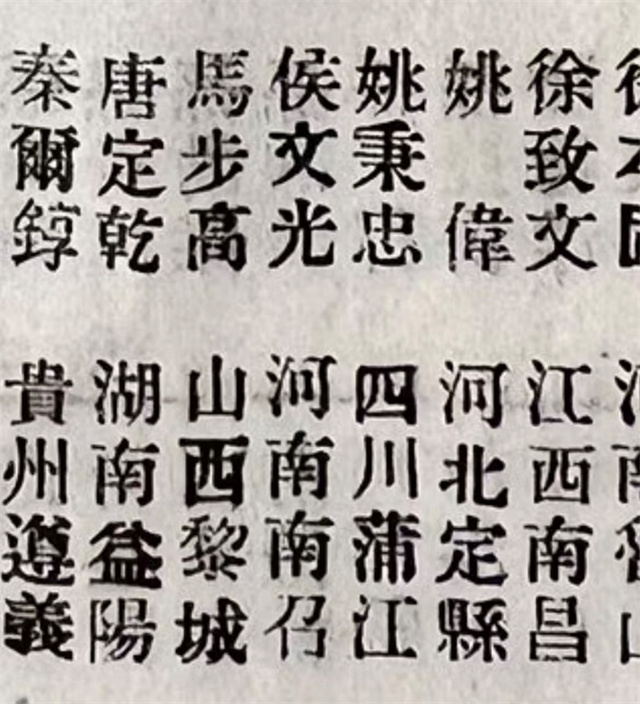 徐致文 江西南昌
姚 偉 河北定縣
姚秉忠 四川蒲江
侯文光 河南南召
馬步高 山西黎城
唐定乾 湖南益陽
秦爾錞 貴州遵義